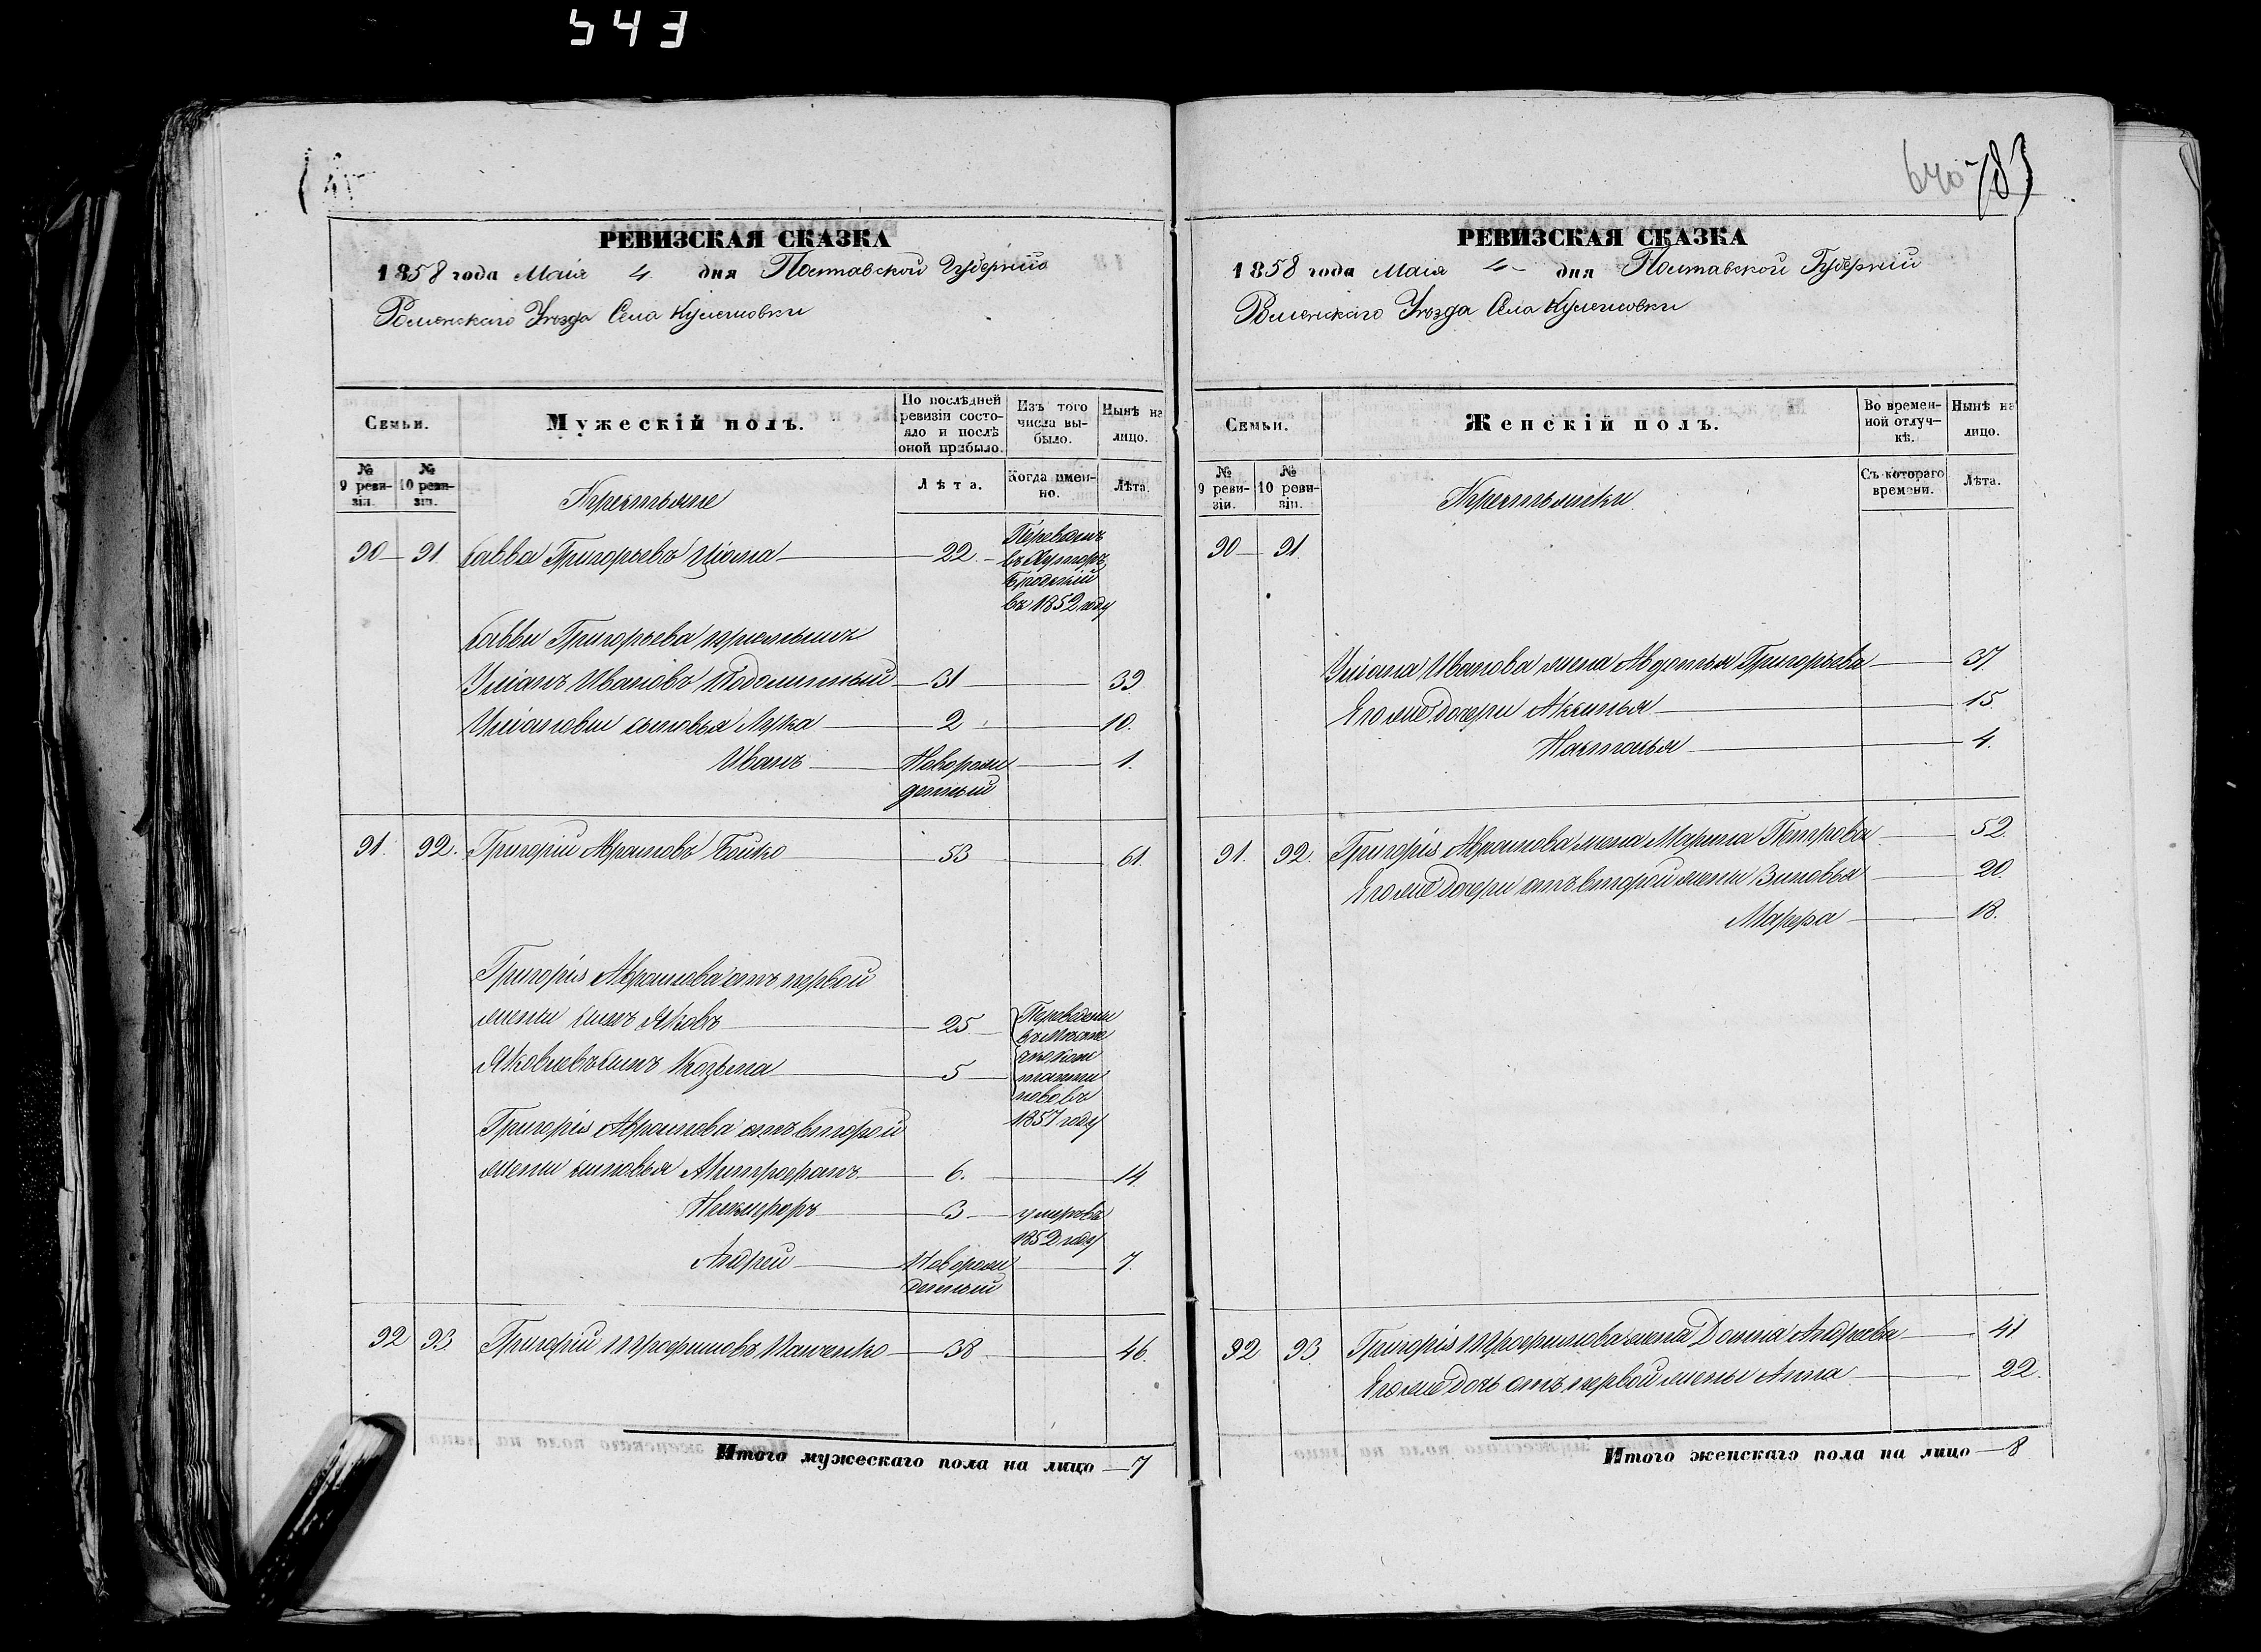 543
640
183
РЕВИЗСКАЯ СКАЗКА
1858 года Маія 4 дня Полтавской Губерніи
Роменскаго Уѣзда Села Кулешовки
Семьи.
Мужескій полъ.
По послѣдней ревизіи состояло и послѣ оной прибыло.
Изъ того числа выбыло.
Нынѣ на лицо.
№ 9 ревизіи.
№ 10 ревизіи.
Крестьяне
Лѣта.
Когда именно.
Лѣта.
90 91 Савва Григорьевъ Цюма 22 Переведенъ
въ Хуторъ
въ 1852 году
Саввы Григорьева пріемышъ
Уліанъ Ивановъ 31 39
Уліановы сыновья Лука 2 10.
Иванъ Новорож 1.
денный
91. 92. Григорій Аврамовъ Бойко 53 61.
Григорія Аврамова отъ первой
жены сынъ Яковъ 25 Переведены
Яковлевъ сынъ Козьма 5
1857 году
Григорія Аврамова отъ второй
жены сыновья Митрофанъ 6. 14
Никифоръ 3 умеръ въ
1852 году
Андрей Новорож 7.
денный
92 93 Григорій Трофимовъ 38 46.
Итого мужескаго пола на лицо 7
РЕВИЗСКАЯ СКАЗКА
1858 года Маія 4 дня Полтавской Губерніи
Роменскаго Уѣзда Села Кулешовки
Семьи.
Женскій полъ.
Во временной отлучкѣ.
Нынѣ на лицо.
№ 9 ревизіи.
№ 10 ревизіи.
Крестьянки
Съ котораго времени.
Лѣта.
90 91
Уліана Иванова жена Авдотья Григорьева 37
Его же дочери Аксинья 15
Настасья 4.
91. 92. Григорія Аврамова жена Марина Петрова 52.
Его же дочери отъ второй жены Зиновья 20.
Марфа 18.
92 93 Григорія Трофимова жена Домна Андреева 41
Его же дочь отъ первой жены Анна 22.
Итого женскаго пола на лицо 8